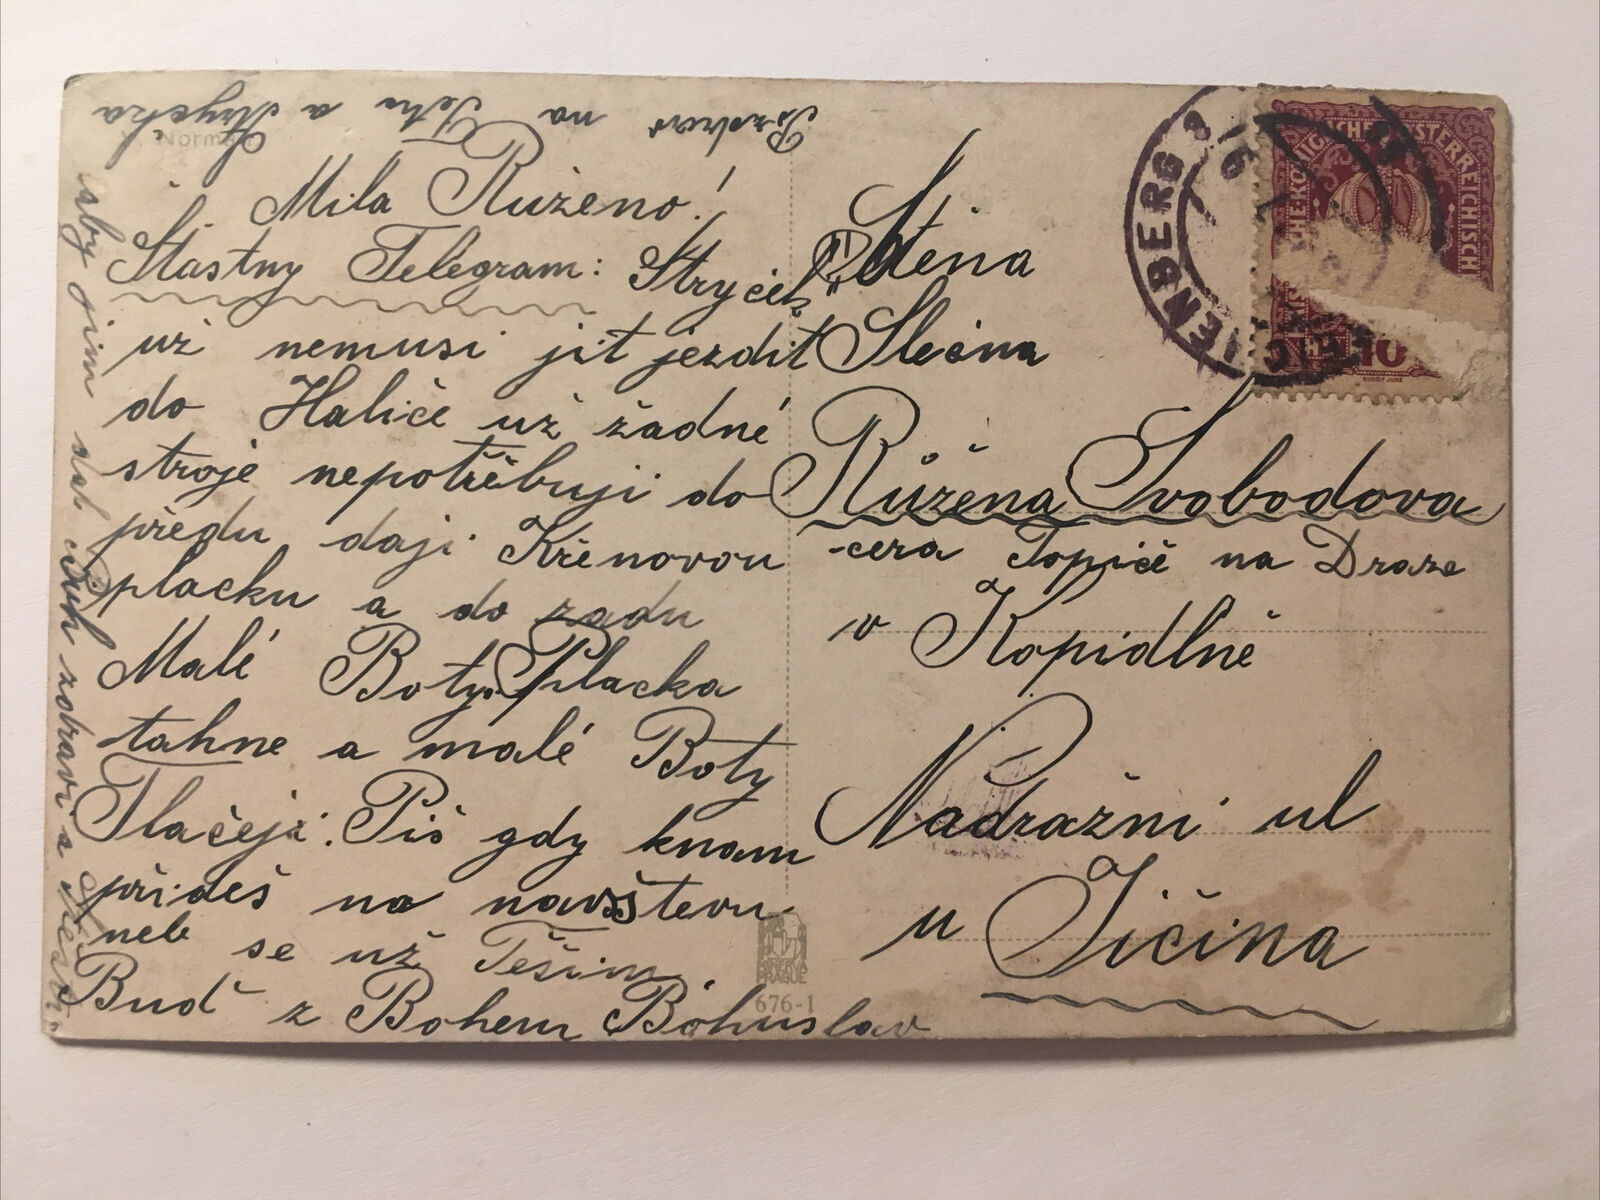 Pozdrav na Tetu a Strycka
Norman
Mila Růženo!
Štastny Telegram: Stryček
už nemusi jit jezdit
do Haliče už žadné
stroje nepotřebuji do
předu daji Křenovou
placku a do zadu
Malé Boty. Placka
tahne a malé Boty
Tlačeji. Piš gdy knam
přideš na navštevu
neb se už Těšim.
Buď z Bohem Bohuslav
aby jim dal Buh zdravi a štesti.
Stěna
Slečna
Růžena Svobodova
cera Topičě na Draze
v Kopidlně
Nádražni ul
u Jičina
KAISERLICHE KÖNIGLICHE ÖSTERREICHISCHE
10
RUDOLF JUNK
REICHENBERG
16
MINERVA
PRAGUE
676-1